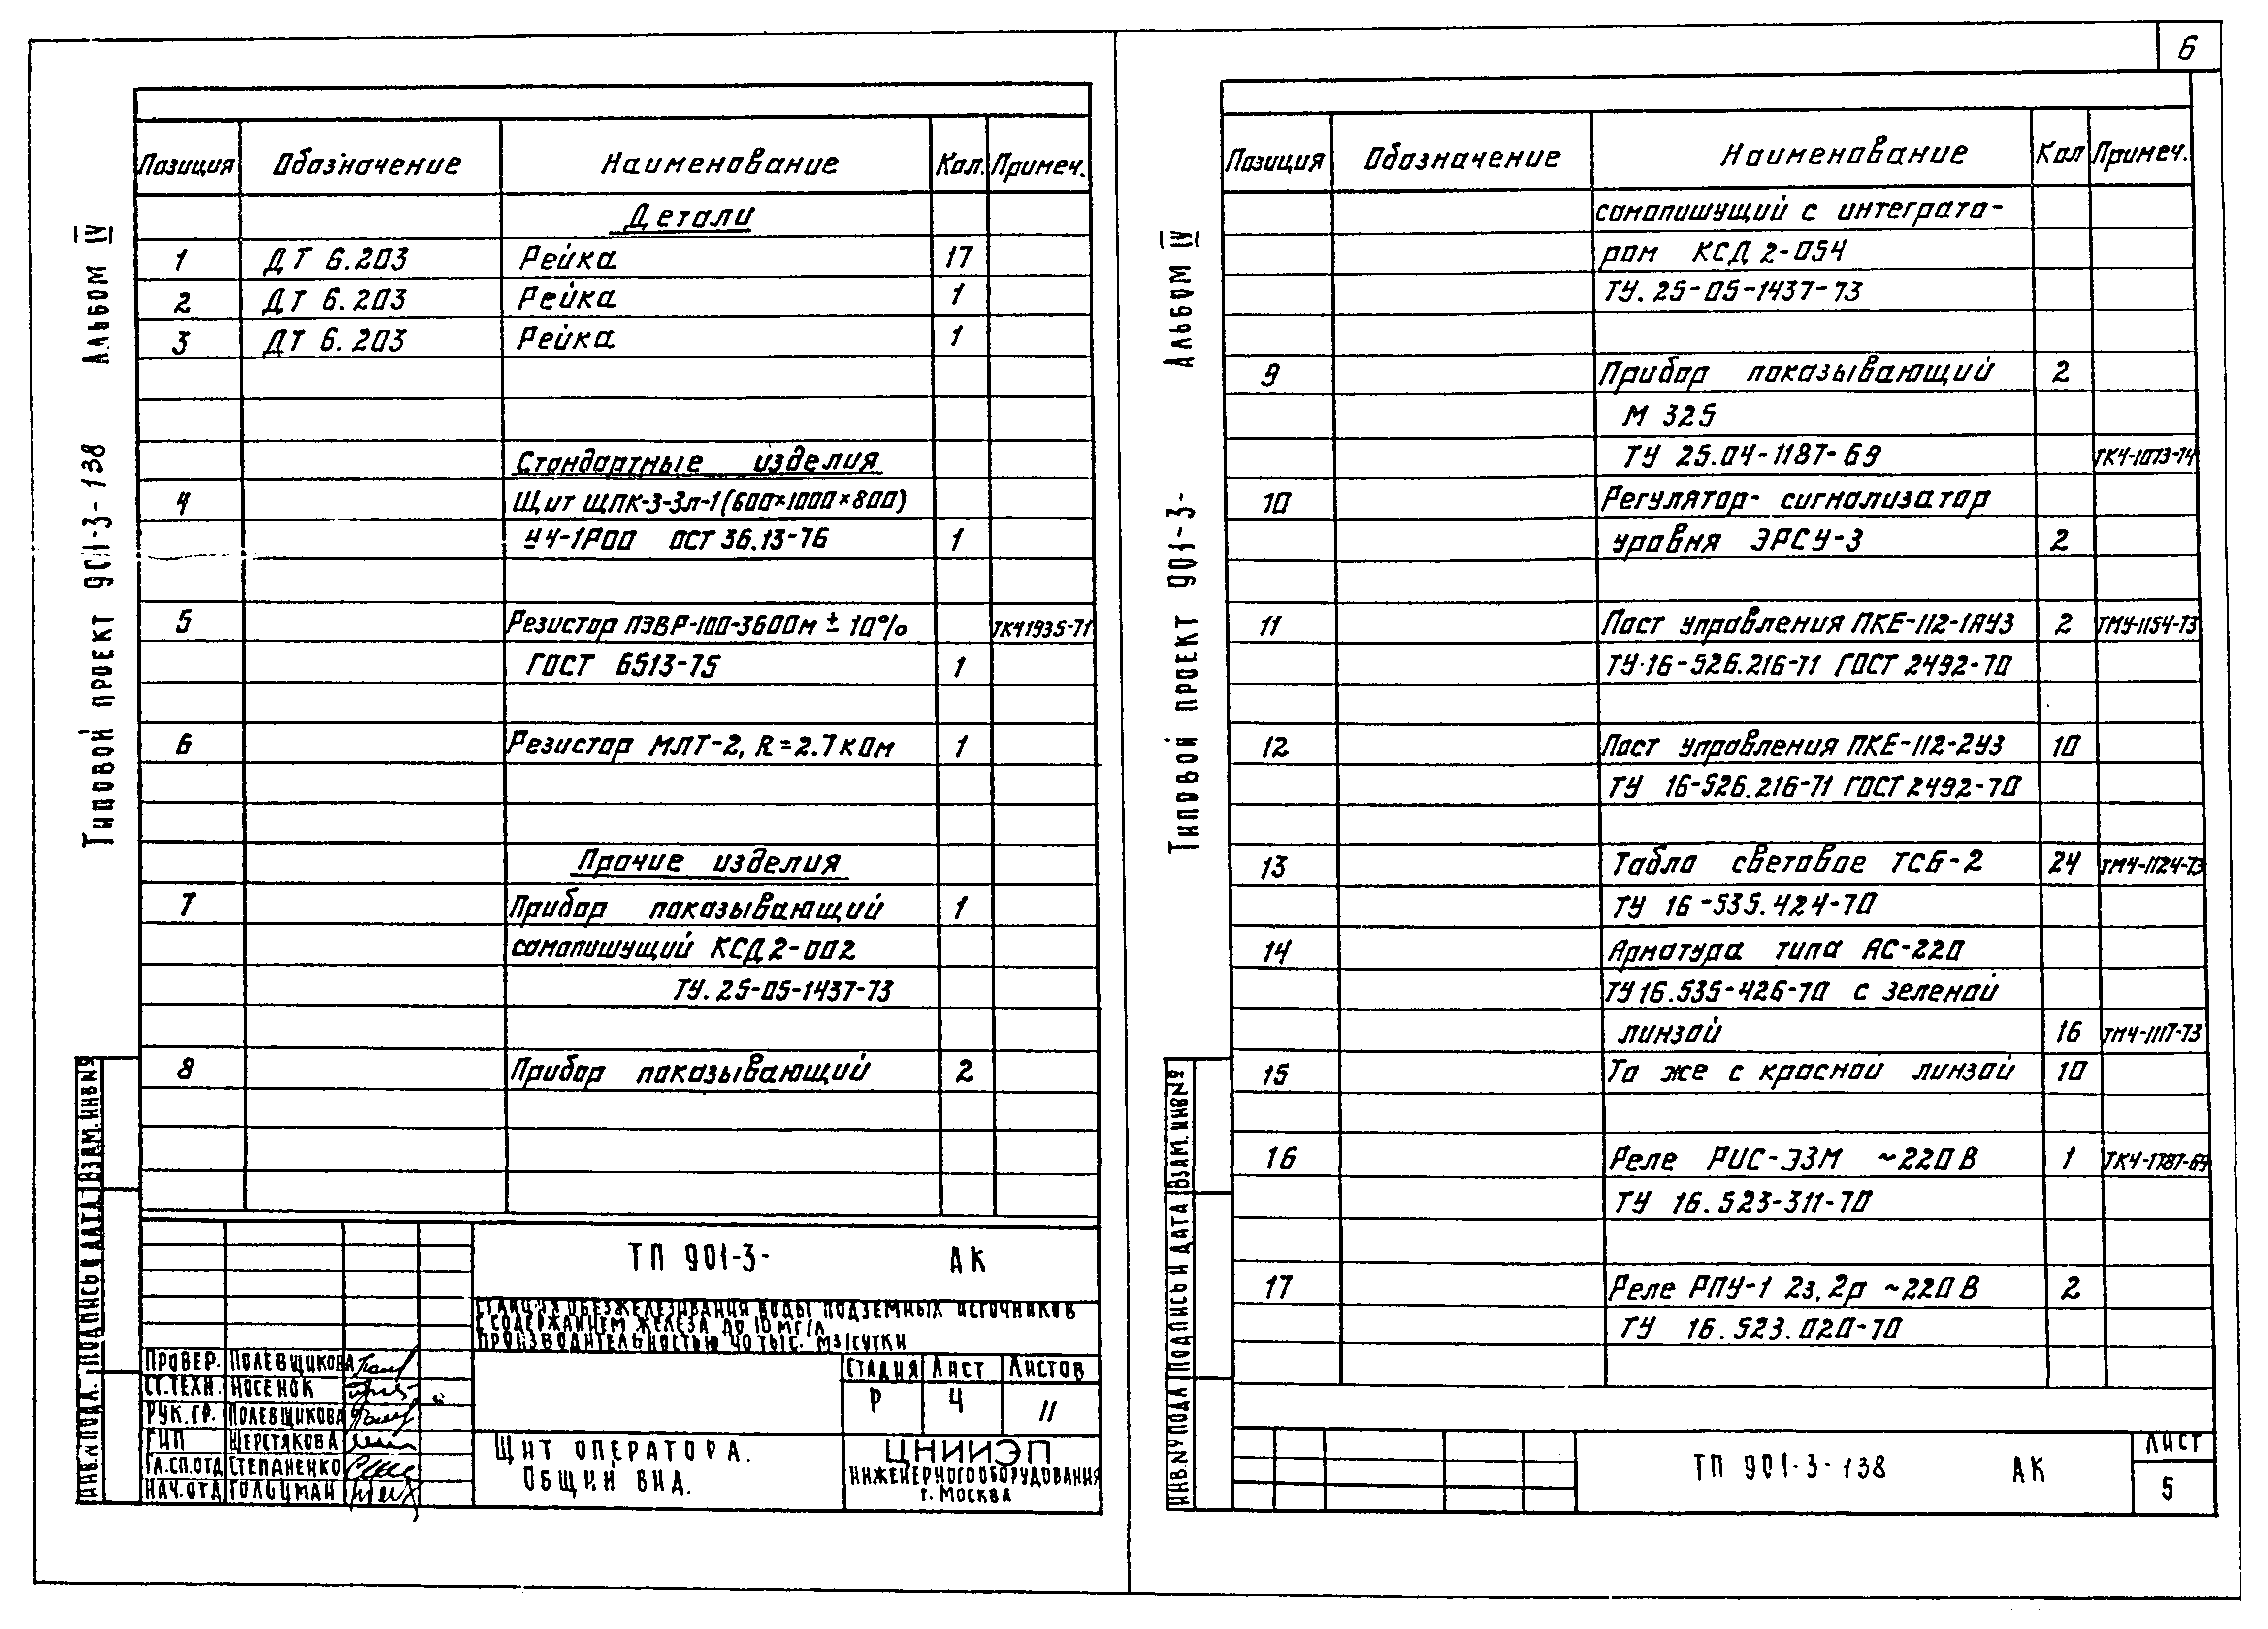 6
Типовой проект 901-3-138 Альбом IV
Позиция Обозначение Наименование Кол. Примеч.
Детали
1 ДТ 6.203 Рейка 17
2 ДТ 6.203 Рейка 1
3 ДТ 6.203 Рейка 1
Стандартные изделия
4 Щит ЩПК-3-3л-1(600×1000×800)
УЧ-1Р00 ОСТ 36.13-76 1
5 Резистор ПЭВР-100-360Ом ± 10% ТК41935-71
ГОСТ 6513-75 1
6 Резистор МЛТ-2, R=2.7кОм 1
Прочие изделия
7 Прибор показывающий 1
самопишущий КСД2-002
ТУ. 25-05-1437-73
8 Прибор показывающий 2
ИНВ.№ПОДЛ. ПОДПИСЬ И ДАТА ВЗАМ.ИНВ№
ТП 901-3- АК
СТАНЦИЯ ОБЕЗЖЕЛЕЗИВАНИЯ ВОДЫ ПОДЗЕМНЫХ ИСТОЧНИКОВ
С СОДЕРЖАНИЕМ ЖЕЛЕЗА ДО 10 МГ/Л
ПРОИЗВОДИТЕЛЬНОСТЬЮ 40 ТЫС. М3/СУТКИ
ПРОВЕР. ПОЛЕВЩИКОВА
СТ.ТЕХН. НОСЕНОК
РУК.ГР. ПОЛЕВЩИКОВА
ГИП ШЕРСТЯКОВА
ГЛ.СП.ОТД СТЕПАНЕНКО
НАЧ.ОТД ГОЛЬЦМАН
СТАДИЯ ЛИСТ ЛИСТОВ
Р 4 11
ЩИТ ОПЕРАТОРА.
ОБЩИЙ ВИД.
ЦНИИЭП
ИНЖЕНЕРНОГО ОБОРУДОВАНИЯ
г. МОСКВА
Типовой проект 901-3- Альбом IV
Позиция Обозначение Наименование Кол Примеч.
самопишущий с интеграто-
ром КСД 2-054
ТУ. 25-05-1437-73
9 Прибор показывающий 2
М 325
ТУ 25.04-1187-69 ТК4-1073-74
10 Регулятор-сигнализатор
уровня ЭРСУ-3 2
11 Пост управления ПКЕ-112-1АУ3 2 ТМ4-1154-73
ТУ·16-526.216-71 ГОСТ 2492-70
12 Пост управления ПКЕ-112-2У3 10
ТУ 16-526.216-71 ГОСТ 2492-70
13 Табло световое ТСБ-2 24 ТМ4-1124-73
ТУ 16-535.424-70
14 Арматура типа АС-220
ТУ16.535-426-70 с зеленой
линзой 16 ТМ4-1117-73
15 То же с красной линзой 10
16 Реле РИС-ЭЗМ ~220В 1 ТК4-1787-69
ТУ 16.523-311-70
17 Реле РПУ-1 2з,2р ~220В 2
ТУ 16.523.020-70
ИНВ.№ПОДЛ ПОДПИСЬ И ДАТА ВЗАМ.ИНВ№
ТП 901-3-138 АК
ЛИСТ
5